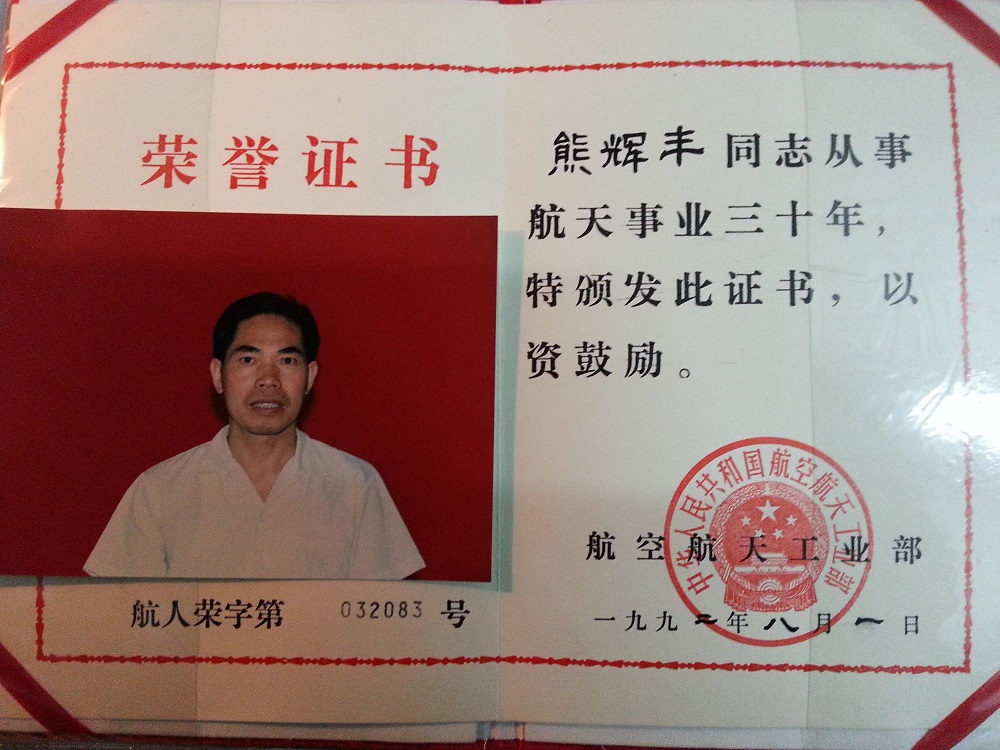 荣誉证书
航人荣字第 032083 号
熊辉丰同志从事
航天事业三十年，
特颁发此证书，以
资鼓励。
航空航天工业部
中华人民共和国航空航天工业部
一九九二年八月一日